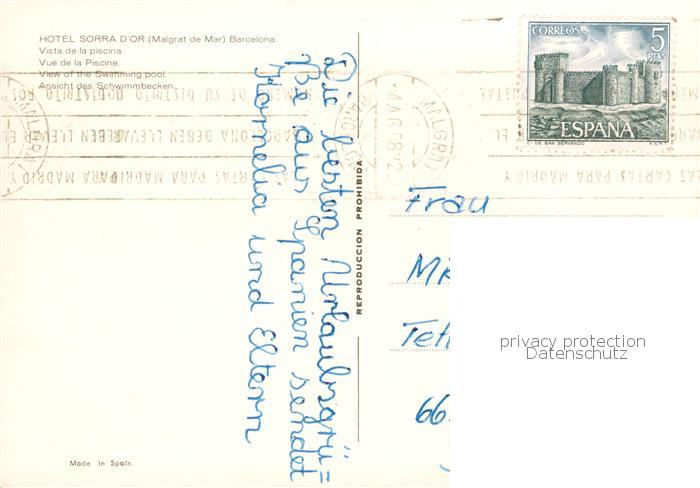 HOTEL SORRA D'OR (Malgrat de Mar) Barcelona.
Vista de la piscina.
Vue de la Piscine.
View of the Swimming pool.
Ansicht des Schwimmbecken.
Die besten Urlaubsgrü=
ße aus Spanien sendet
Kornelia und Eltern
REPRODUCCION PROHIBIDA
Made in Spain
CORREOS
5
PTAS
ESPAÑA
Cº DE SAN SERVANDO
F.N.M.T.
LAS CARTAS PARA MADRID Y
BARCELONA DEBEN LLEVAR EL
NUMERO DE SU DISTRITO POSTAL
Frau
66
privacy protection
Datenschutz